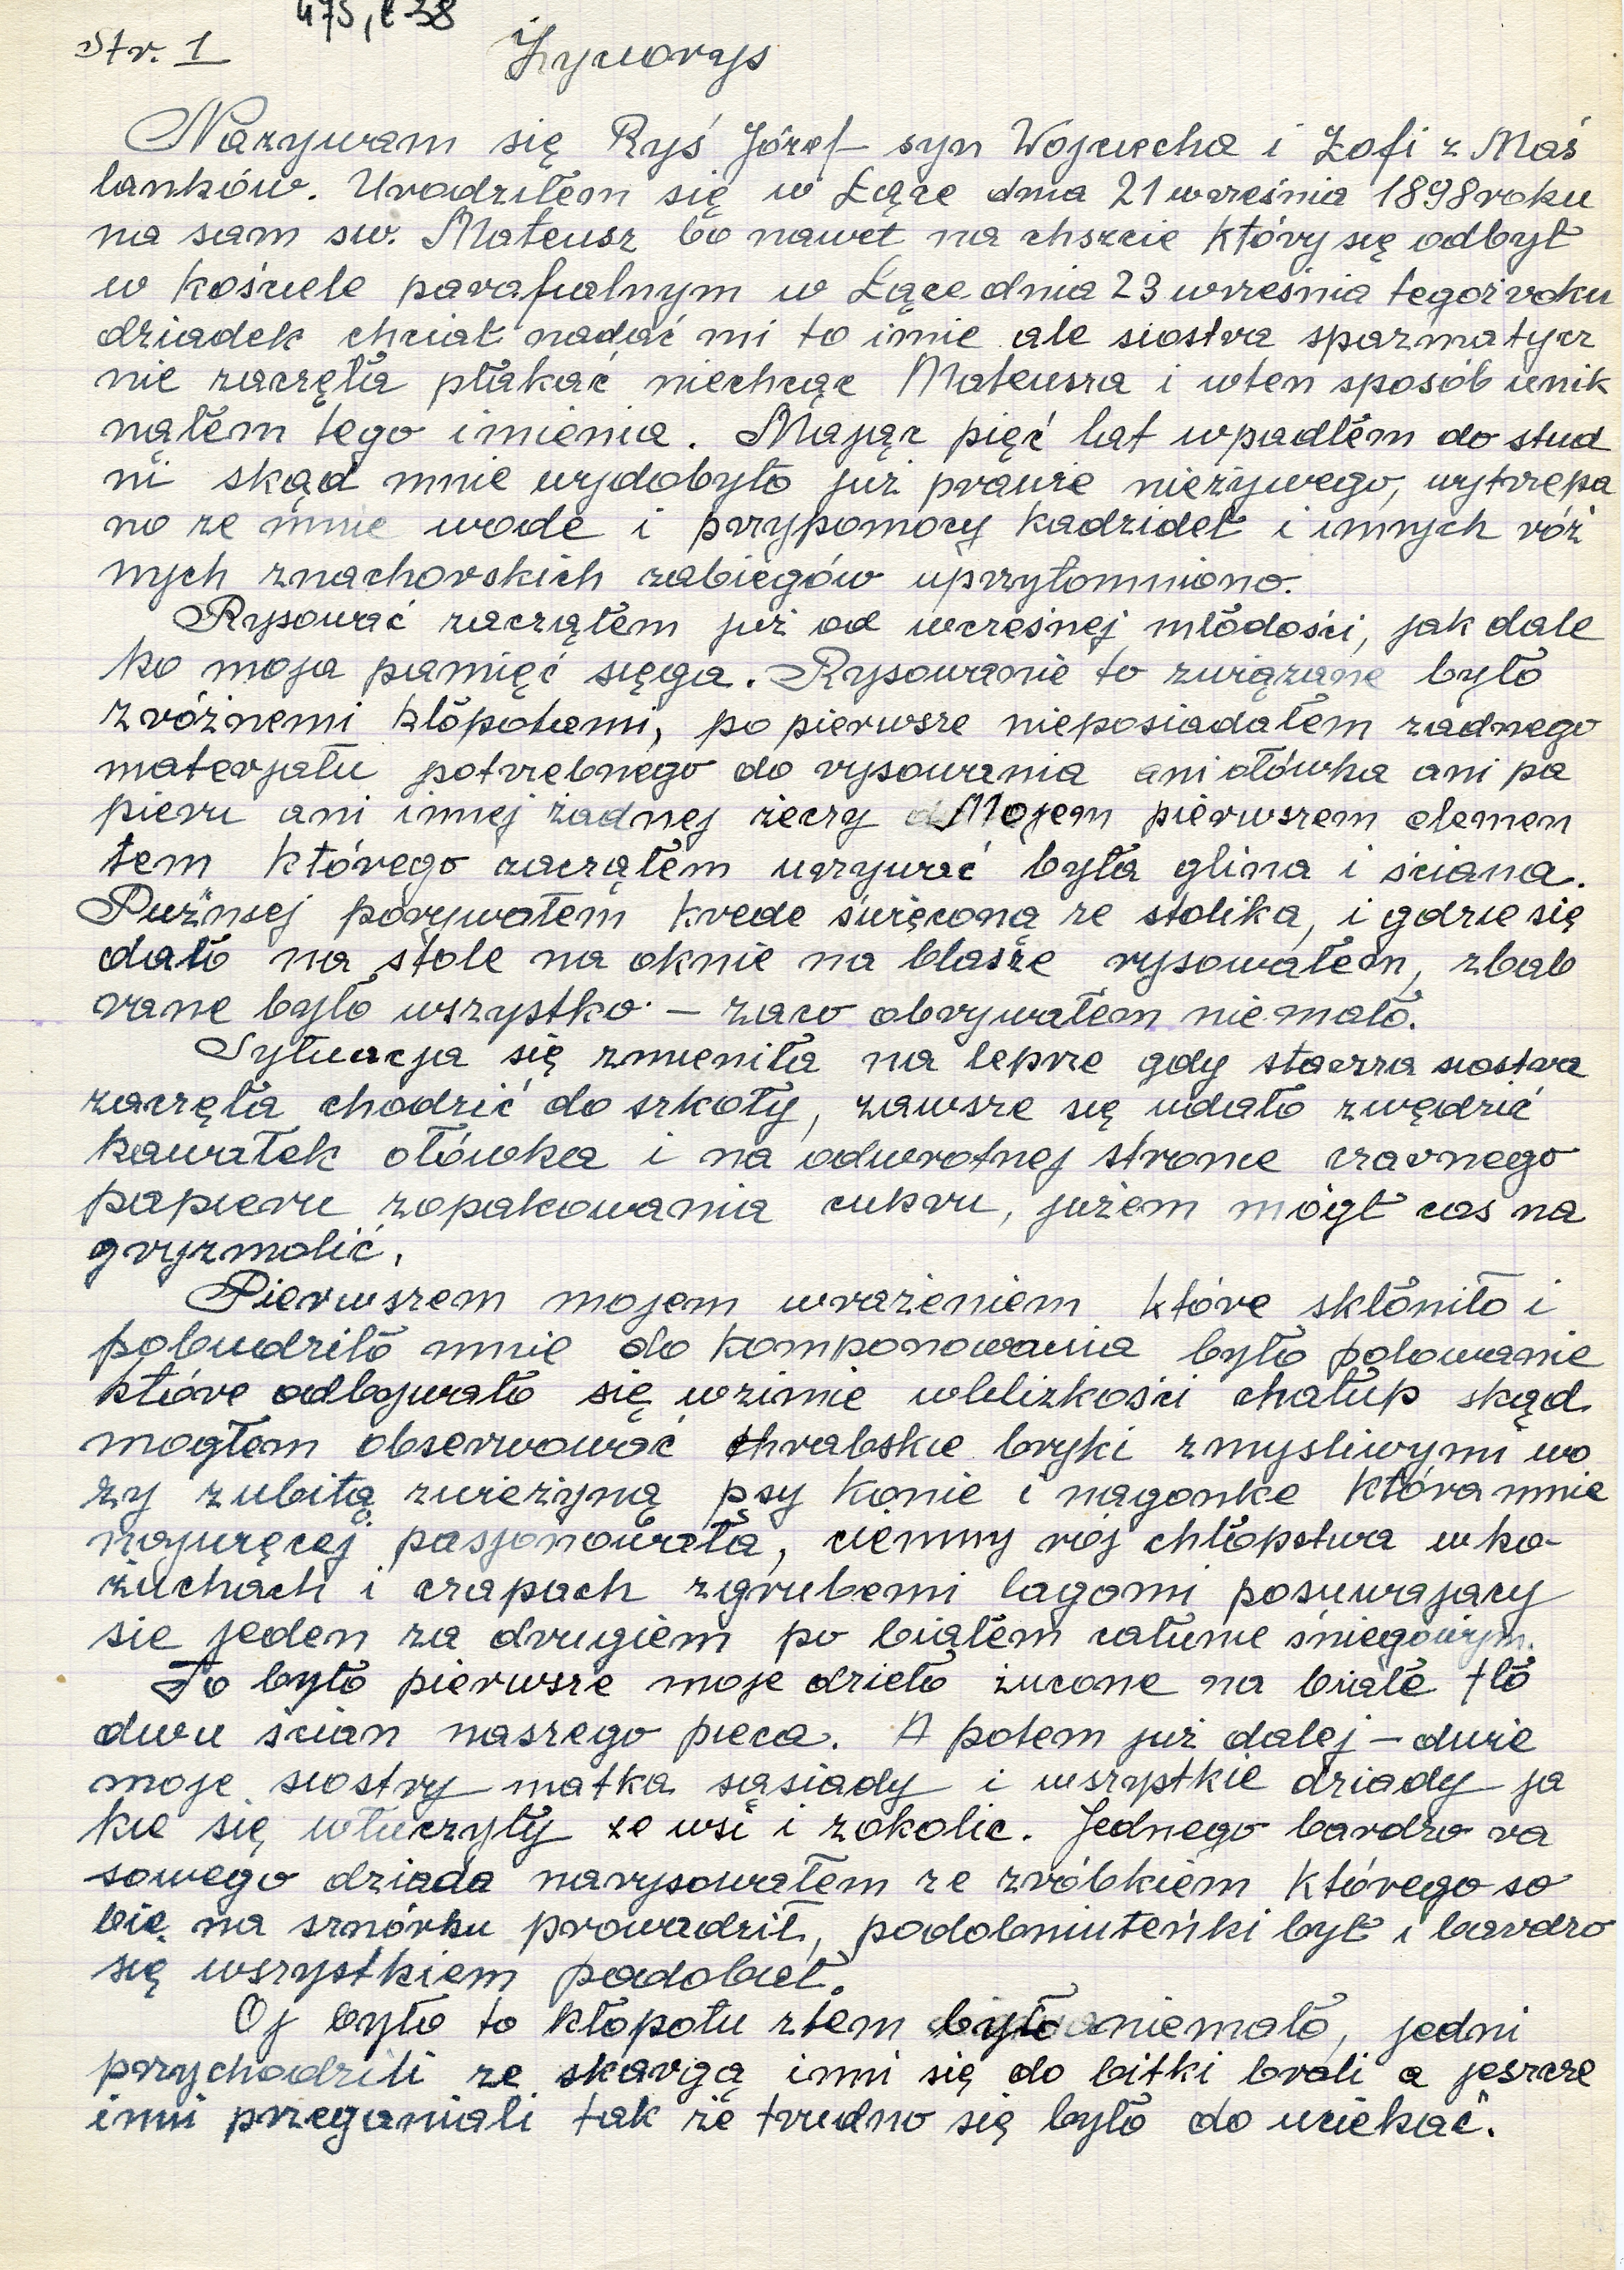 475, t-38
Str. 1
Życiorys
Nazywam się Ryś Józef syn Wojciecha i Zofi z Maś
lanków. Urodziłem się w Łące dnia 21 wreśnia 1898 roku
na sam sw. Mateusz bo nawet na chszcie który się odbył
w kościele parafialnym w Łące dnia 23 wreśnia tegoż roku
dziadek chciał nadać mi to imie ale siostra spazmatycz
nie zaczęła płakać niechcąc Mateusza i wten sposób unik
nąłem tego imienia. Mając pięć lat wpadłem do stud
ni skąd mnie wydobyto już prawie nieżywego, wytrzepa
no ze mnie wode i przypomocy kadzideł i innych róż
nych znachorskich zabiegów uprzytomniono.
Rysować zacząłem już od wczesnej młodości, jak dale
ko moja pamięć sięga. Rysowanie to związane było
z różnemi kłopotami, po pierwsze nieposiadałem żadnego
materjału potrzebnego do rysowania ani ołówka ani pa
pieru ani innej żadnej żeczy Mojem pierwszem elemen
tem którego zacząłem uzywać była glina i ściana.
Puźniej porywałem krede święconą ze stolika, i gdzie się
dało na stole na oknie na blasze rysowałem, zbab
rane było wszystko – zaco obrywałem niemało.
Sytuacja się zmieniła na lepsze gdy starsza siostra
zaczęła chodzić do szkoły, zawsze się udało zwędzić
kawałek ołówka i na odwrotnej stronie czarnego
papieru zopakowania cukru, jużem mógł cos na
gryzmolić.
Pierwszem mojem wrażeniem które skłoniło i
pobudziło mnie do komponowania było polowanie
które odbywało się wzimie wblizkości chałup skąd
mogłem obserwować hrabskie bryki zmysliwymi wo
zy zubitą zwieżyną psy konie i nagonke która mnie
najwięcej pasjonowała, ciemny rój chłopstwa wko-
żuchach i czapach zgrubemi lagami posuwajacy
sie jeden za drugiem po białem całunie śniegowym.
To było pierwsze moje dzieło żucone na białe tło
dwu ścian naszego pieca. A potem już dalej – dwie
moje siostry matka sąsiady i wszystkie dziady ja
kie się włuczyły ze wsi i zokolic. Jednego bardzo ra
sowego dziada narysowałem ze zróbkiem którego so
bie na sznórku prowadził, podobniuteńki był i bardzo
się wszystkiem podobał.
Oj było to kłopotu ztem było niemało, jedni
przychodzili ze skargą inni się do bitki brali a jeszcze
inni przeganiali tak że trudno się było do uciekać.